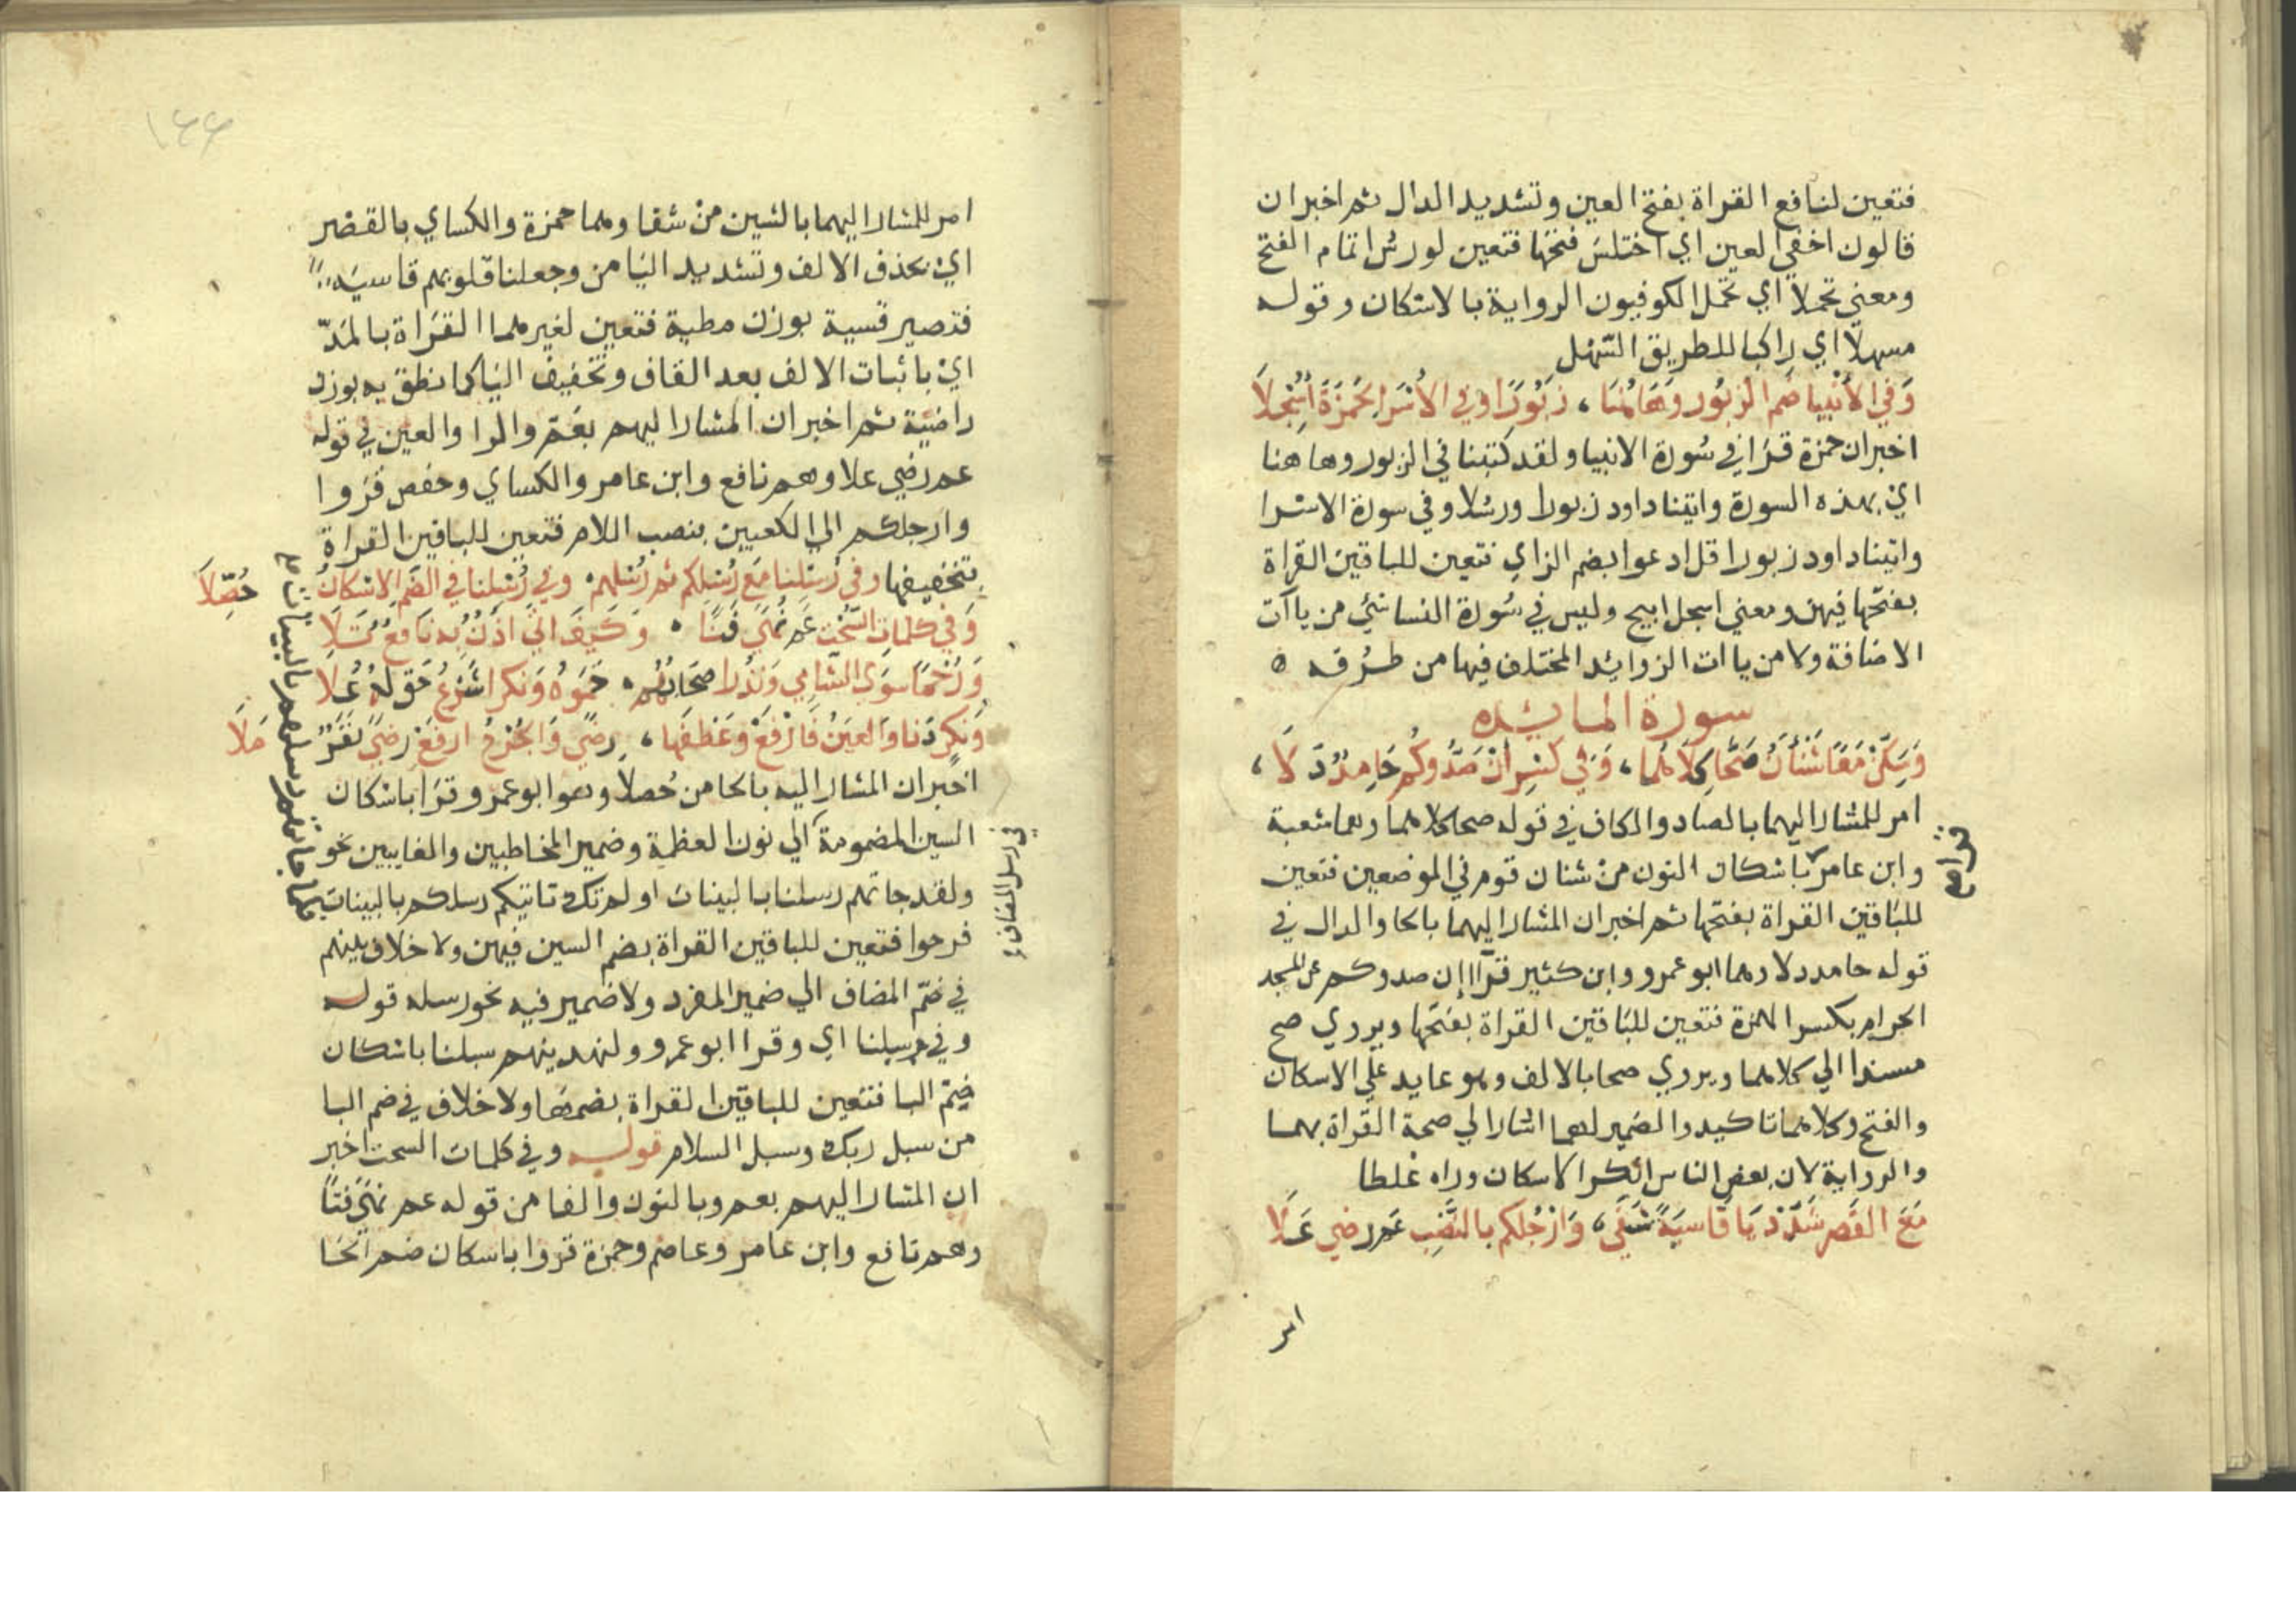 فتعين لنافع القراة بفتح العين وتشديد الدال ثم اخبر ان
قالون اخفي العين اي اختلس فتحها فتعين لورش اتمام الفتح
ومعني تحملا اي تحمل الكوفيون الرواية بالاسكان وقوله
مسهلا اي راكبا للطريق السهل
وَفي الأنبيا ضم الزبُور وَهَاهُنَا ، زبُورًا وفي الأسرا لحَمزَةَ أسْجلَا
اخبر ان حمزة قرَا في سُورة الانبيا ولقد كتبنا في الزبور وها هنا
ايْ بهذه السورة واتينا داود زبورا ورسُلا وفي سورة الاسرا
واتينا داود زبورا قل ادعوا بضم الزاي فتعين للباقين القراة
بفتحها فيهن ومعني اسجل ابيح وليس في سُورة النسا شئ من ياآت
الاضافة ولا من ياات الزوايد المختلف فيها من طرُقه ٥
سورة المايده
وَسَكِّنْ مَعًا شَنْآنُ صَحَّا كلَاهُما ، وَفي كسرِ أنْ صَدُّوكُم حَامدٌ دَلَا ،
امر للمشار اليهما بالصاد والكاف في قوله صحا كلاهما وهما شعبة
وابن عامر باسكان النون من شنان قوم في الموضعين فتعين
للبَاقين القراة بفتحها ثم اخبر ان المشار اليهما بالحا والدال في
قوله حامد دلا وهما ابو عمرو وابن كثير قرآ إن صدوكم عن المسجد
الحرام بكسر الهمزة فتعين للباقين القراة بفتحها ويروي صح
مسندا الي كلاهما ويروي صحا بالالف وهو عايد علي الاسكان
والفتح وكلاهما تاكيد والضمير لهما اشار الي صحة القراة بهما
والرواية لان بعض الناس انكر الاسكان وراه غلطا
مَعَ القَصر شَدِّدْ يَا قَاسيَةً شَفَي ، وَارْجُلكم بالنَّصْبِ عَم رضي عَلَا
امر
امر للمشار اليهما بالشين من شفا وهما حمزة والكساي بالقصر
ايْ بحذف الالف وتشديد اليَا من وجعلنا قلوبهم قاسيَه
فتصير قسية بوزن مطية فتعين لغيرهما القرَاة بالمَدّ
ايْ باثبات الالف بعد القاف وتخفيف اليَا كما نطق به بوزن
راضيَة ثم اخبر ان المشار اليهم بعَمّ والرا والعين في قوله
عم رضي علا وهم نافع وابن عامر والكساي وحفص قرَوا
وارجلكم الي الكعبين بنصب اللام فتعين للباقين القراة
بتخفيفها وفي رُسْلنا مَع رُسْلكم ثم رُسْلهم . وفي سُبْلنا في الضَّم الاسْكانُ حُصِّلَا
وَفي كلمات السُّحْت عَم نُهَي فَتًا . وَكَيفَ اتَي اُذْنٌ به نَافعٌ تَلَا
وَرُحْمًا سوَي الشَّامي وَنُذْرًا صحَابُهُم . حَمَوْهُ وَنكرا شَرْعُ حَق لَهُ عُلَا
وَنكر دَنا وَالعَيْنُ فَارْفَعْ وَعَطفَهَا ، رضًي وَالجُرُوحَ ارفَعْ رضَي نَفَرٍ مَلَا
اخبر ان المشار اليه بالحا من حُصلا وهو ابو عمرو قرَا باسكان
السين المضمومة الي نون العظمة وضمير المخاطبين والغايبين نحو
ولقد جاتهم رسلنا بالبينات اولم تك تاتيكم رسلكم بالبينات
فرحوا فتعين للباقين القراة بضم السين فيهن ولا خلاف بينهم
في ضَمّ المضاف الي ضمير المفرد ولا ضمير فيه نحو رسله قوله
وفي سبلنا اي وقرا ابو عمرو ولنهدينهم سبلنا باسكان
ضمّ البا فتعين للباقين القراة بضمهَا ولا خلاف في ضم البا
من سبل ربك وسبل السلام قوله وفي كلمات السحت اخبر
ان المشار اليهم بعم وبالنون والفا من قوله عم نهًي فتًا
وهم نافع وابن عامر وعاصم وحمزة قروا باسكان ضم الحَا